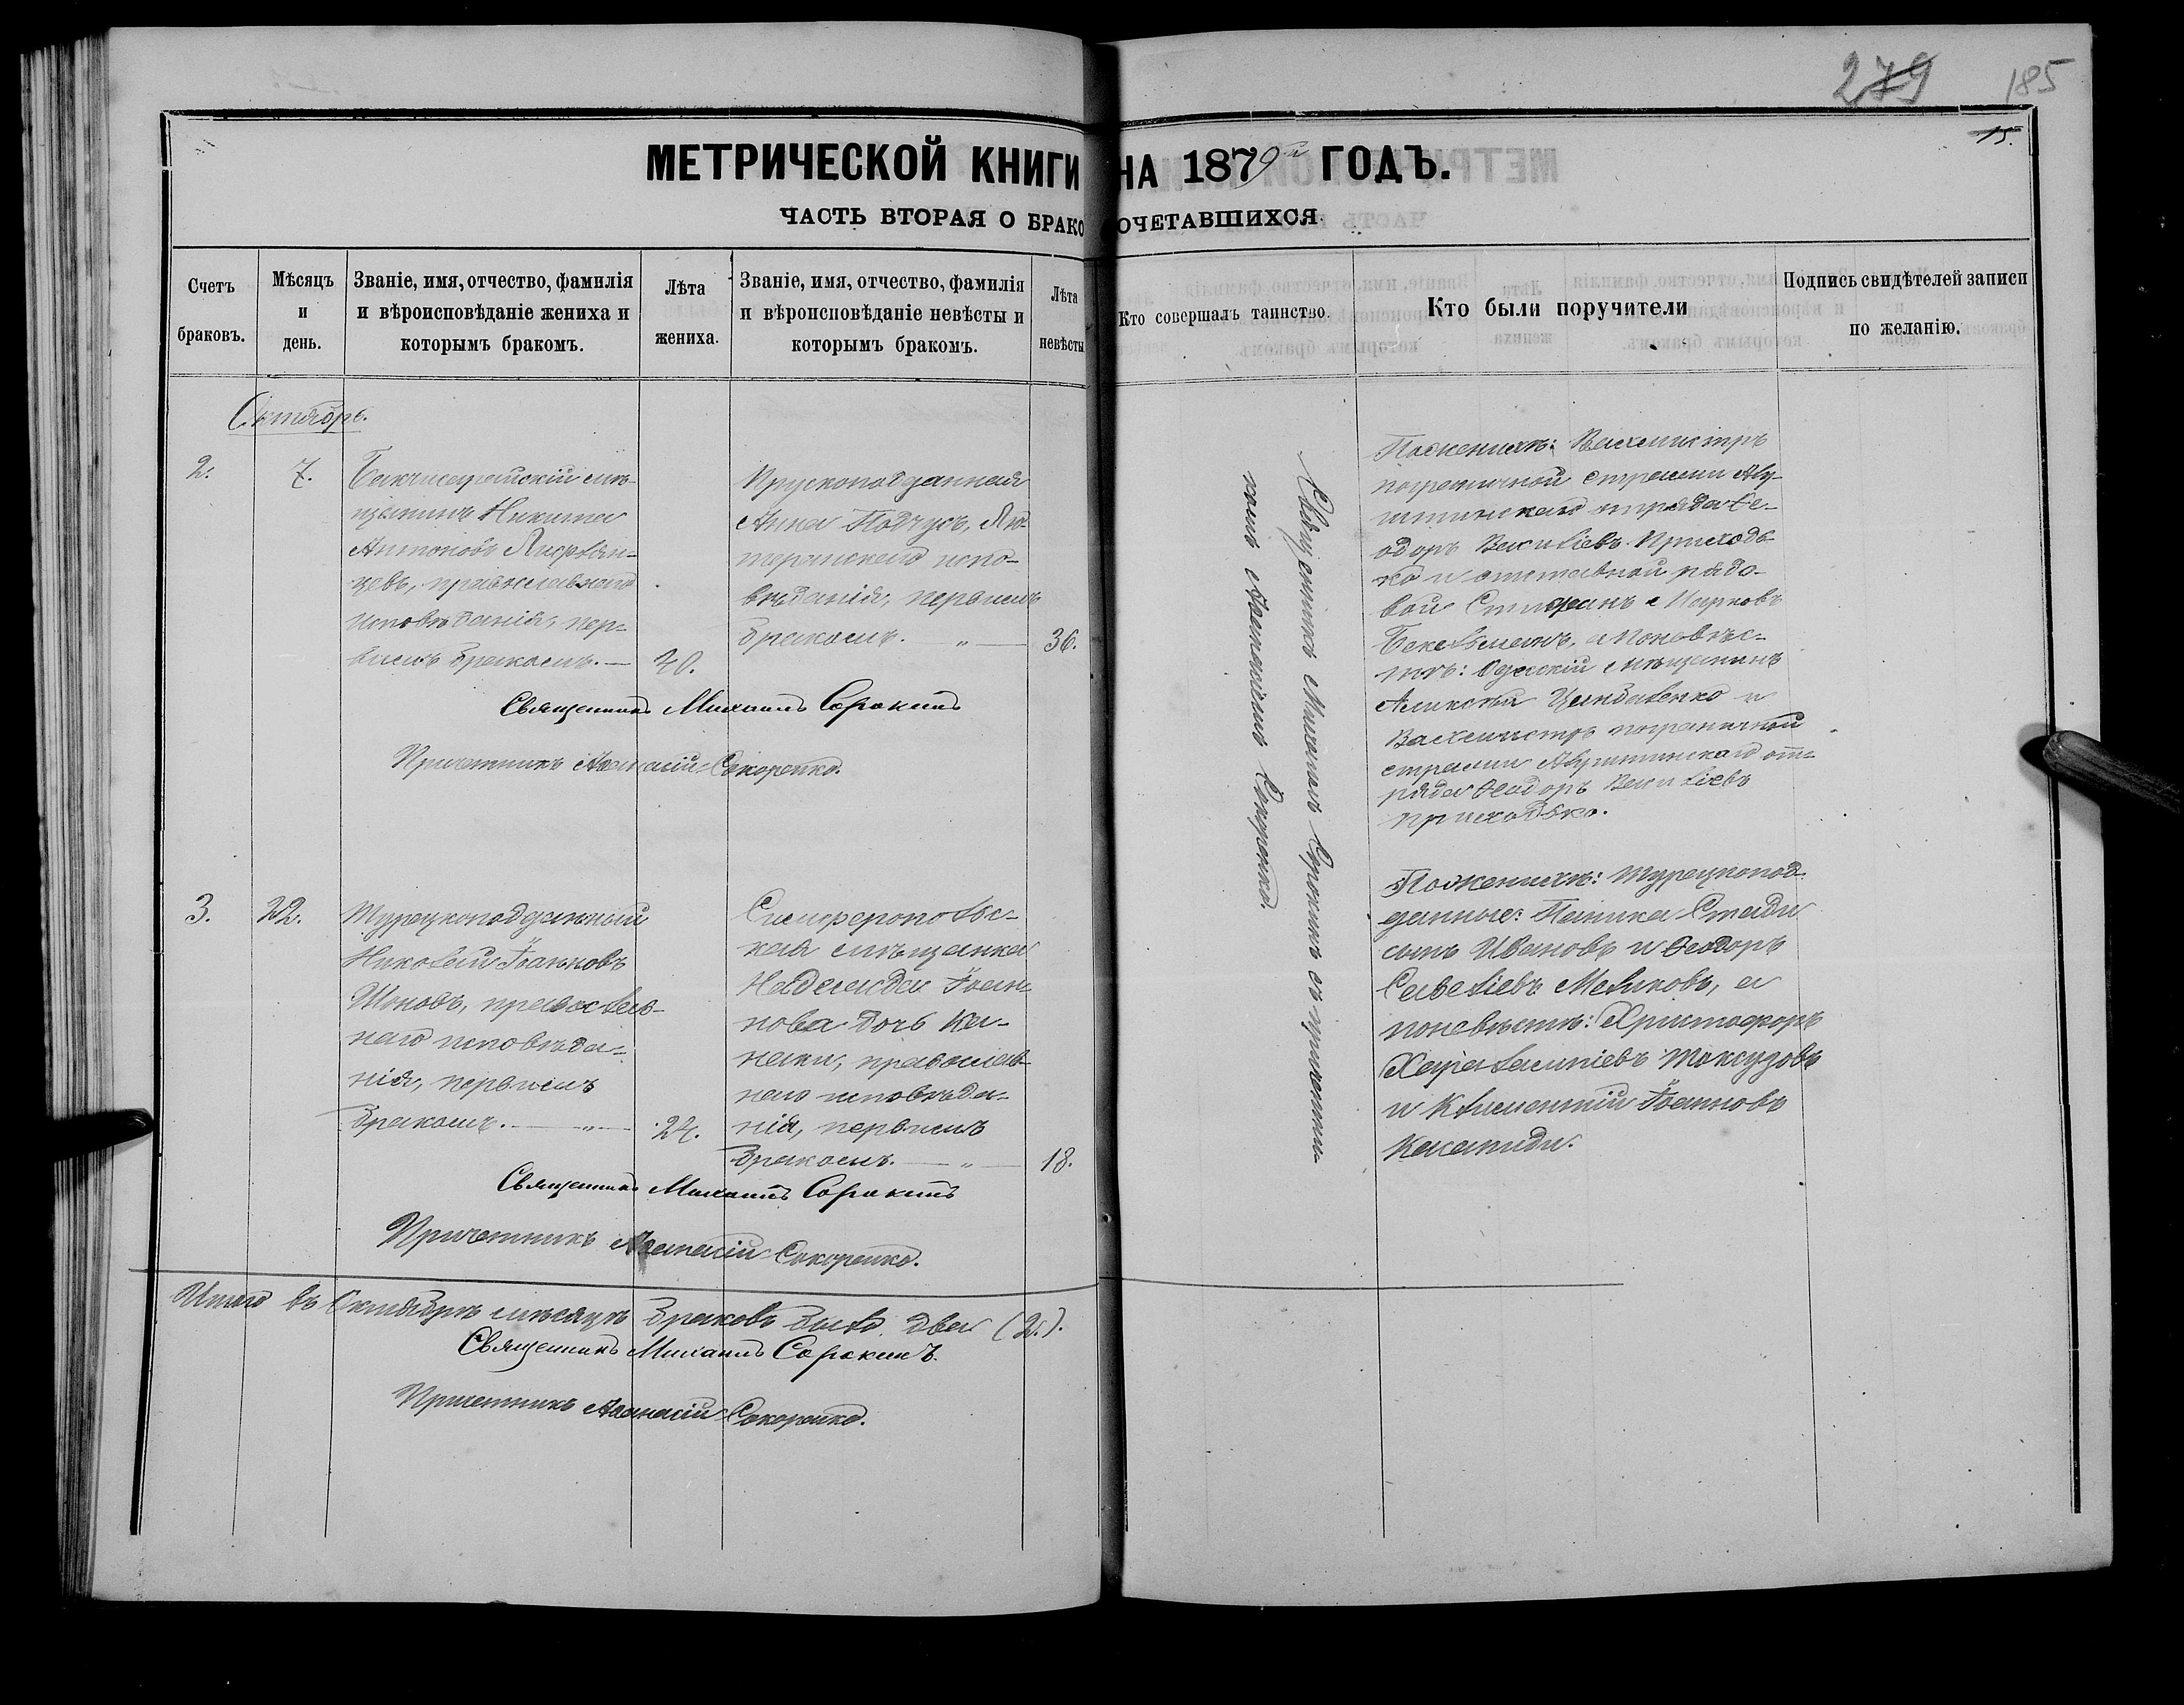 279 185
15.
МЕТРИЧЕСКОЙ КНИГИ НА 1879й ГОДЪ.
ЧАСТЬ ВТОРАЯ О БРАКОСОЧЕТАВШИХСЯ.
Счетъ браковъ.
Мѣсяцъ и день.
Званіе, имя, отчество, фамилія
и вѣроисповѣданіе жениха и
которымъ бракомъ.
Лѣта жениха.
Званіе, имя, отчество, фамилія
и вѣроисповѣданіе невѣсты и
которымъ бракомъ.
Лѣта невѣсты
Кто совершалъ таинство.
Кто были поручители
Подпись свидѣтелей записи
по желанію.
Октябрь.
2. 7.
Бакчисарайскій мѣ-
щанинъ Никита
Антоновъ
цевъ, православнаго
исповѣданія, пер-
вымъ бракомъ. —
40.
Прускоподданная
Анна Подчусъ, Лю-
теранскаго испо-
вѣданія, первымъ
бракомъ. — „ —
36.
Священникъ Михаилъ Сорокинъ
Причетникъ Аѳанасій Сокоренко.
Священникъ Михаилъ Сорокинъ съ причетни-
комъ Аѳанасіемъ Сокоренко.
По женихѣ: Вахмистръ
пограничной стражи Алу-
штинскаго отряда Ѳе-
одоръ Васильевъ Приходь-
ко и отставной рядо-
вой Стефанъ Марковъ
а по невѣс-
тѣ: Одесскій мѣщанинъ
Алексѣй Цындаленко и
Вахмистръ пограничной
стражи Алуштинскаго от-
ряда Ѳеодоръ Васильевъ
Приходько.
3. 22.
Турецкоподданный
Николай Іоанновъ
Шоновъ, православ-
наго исповѣда-
нія, первымъ
бракомъ. — „ —
24.
Симферополь-
ская мѣщанка
Надежда Іоан-
нова дочь Ка-
наки, православ-
наго исповѣда-
нія, первымъ
бракомъ. — „ —
18.
По женихѣ: Турецкопод-
данные: Паника Стади
сынъ Ивановъ и Ѳеодоръ
Савельевъ Меликовъ, а
по невѣстѣ: Христофоръ
Харалампіевъ Токсудовъ
и Климентій Іоанновъ
Касапиди.
Священникъ Михаилъ Сорокинъ
Причетникъ Аѳанасій Сокоренко.
Итого въ Октябрѣ мѣсяцѣ браковъ было два (2.).
Священникъ Михаилъ Сорокинъ.
Причетникъ Аѳанасій Сокоренко.